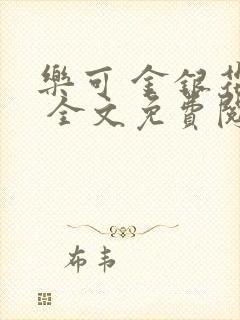 樂可 金銀花
全文免費閱
布韦